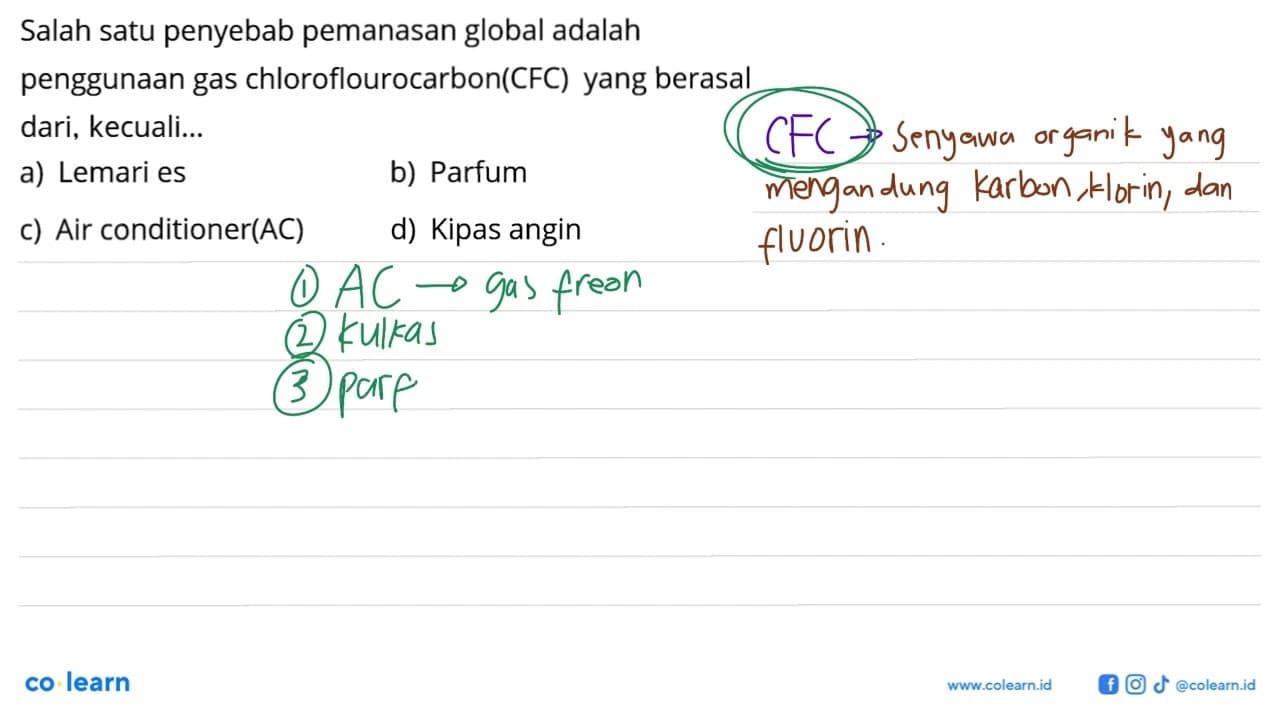 Salah satu penyebab pemanasan global adalah
penggunaan gas chloroflourocarbon(CFC) yang berasal
dari, kecuali...
a) Lemari es b) Parfum
c) Air conditioner(AC) d) Kipas angin
CFC → Senyawa organik yang
mengandung karbon, klorin, dan
fluorin.
① AC → gas freon
② kulkas
③ parf
co learn
www.colearn.id @colearn.id